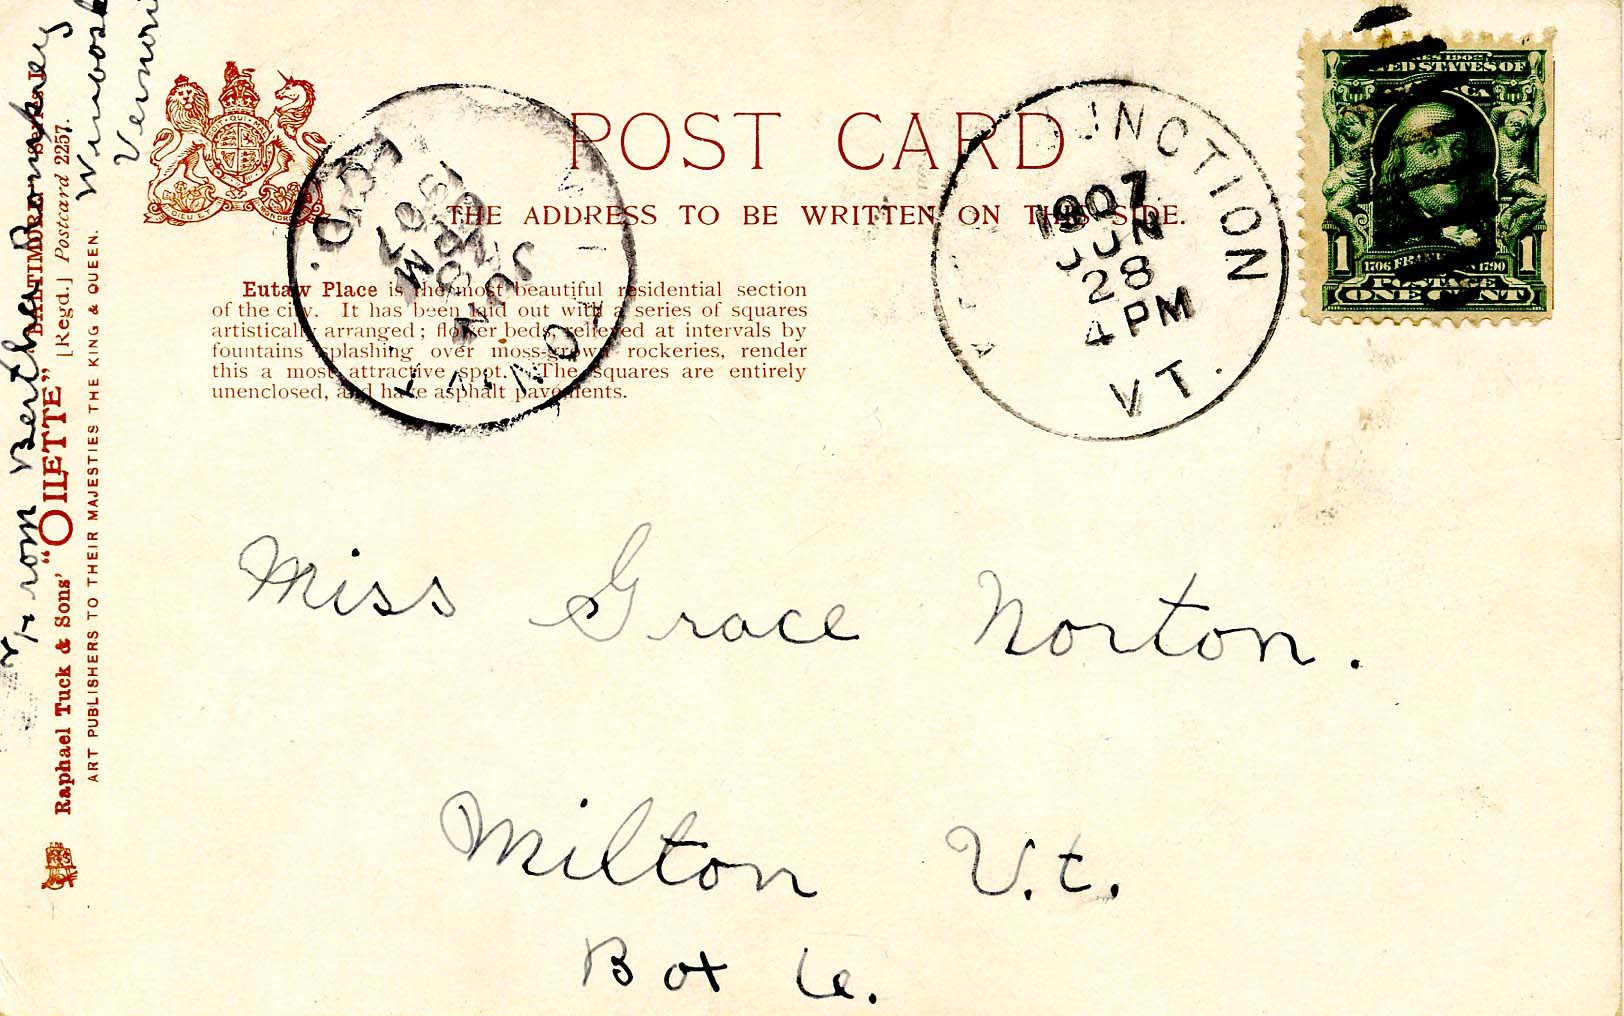 POST CARD
THE ADDRESS TO BE WRITTEN ON THIS SIDE.
Eutaw Place is the most beautiful residential section
of the city. It has been laid out with a series of squares
artistically arranged; flower beds, relieved at intervals by
fountains splashing over moss-grown rockeries, render
this a most attractive spot. The squares are entirely
unenclosed, and have asphalt pavements.
JUNCTION
1907
JUN
28
4 PM
VT.
MILTON, VT.
JUN
1907
REC'D.
UNITED STATES OF
AMERICA
1706 FRANKLIN 1790
POSTAGE
1 ONE CENT 1
Miss Grace Norton.
Milton V.t.
Box
From Bertha
Winooski
Vermont
Raphael Tuck & Sons' "OILETTE"
BALTIMORE
[Regd.] Postcard 2257.
ART PUBLISHERS TO THEIR MAJESTIES THE KING & QUEEN.